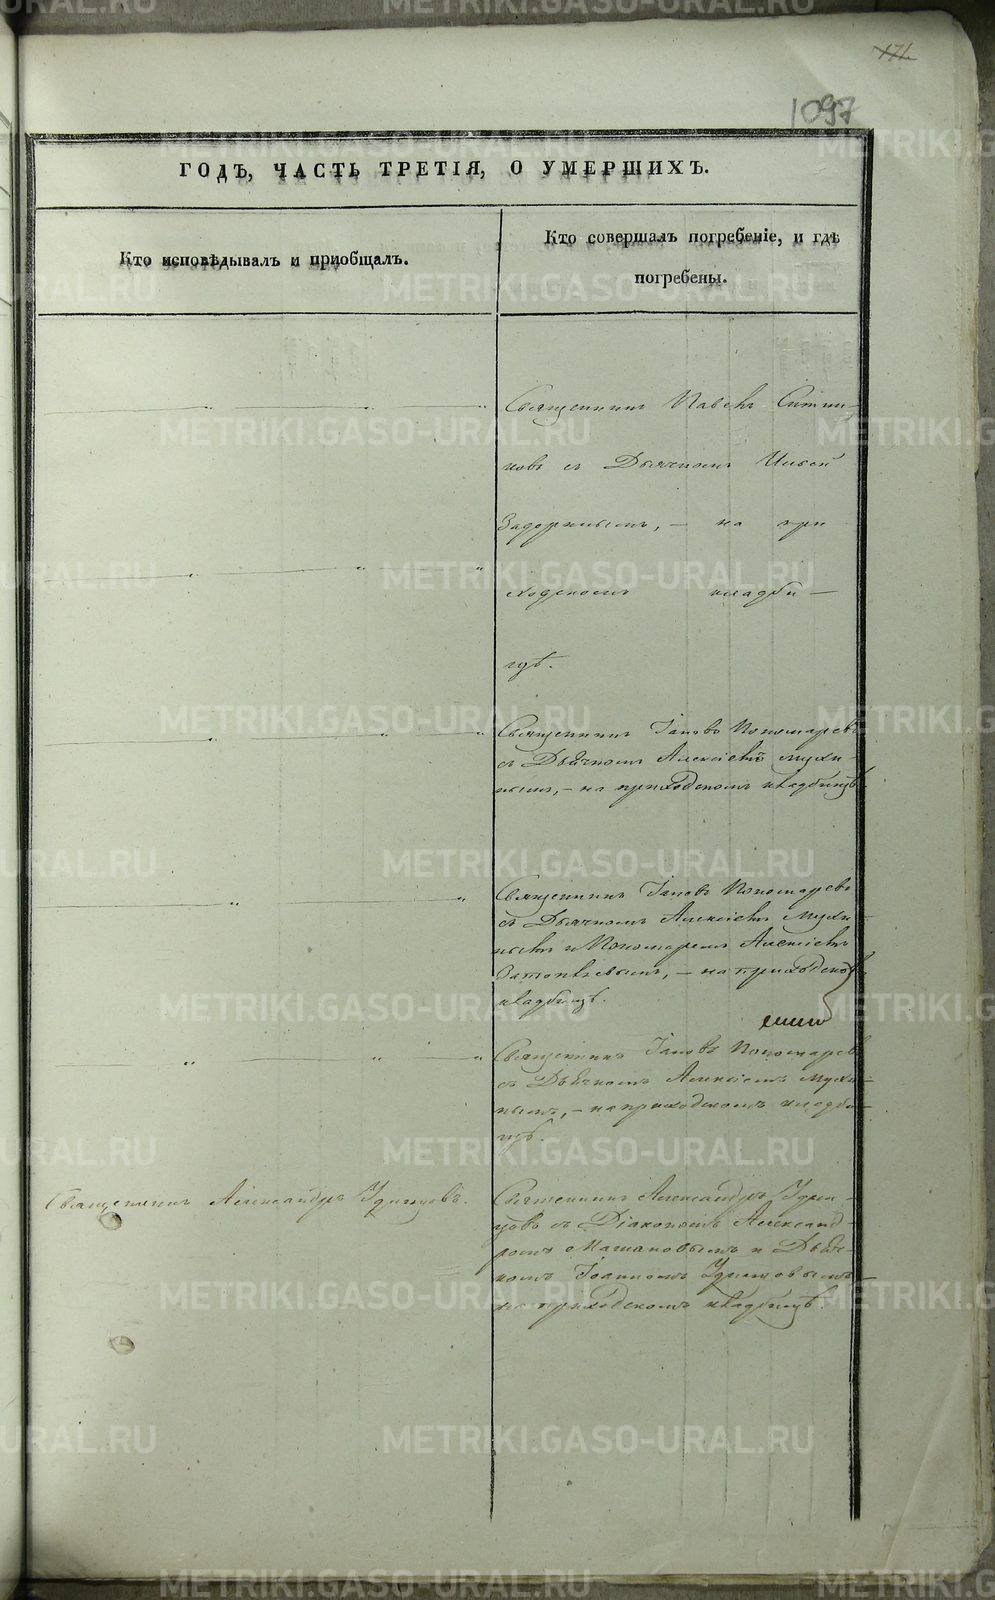 171.
1097
ГОДЪ, ЧАСТЬ ТРЕТІЯ, О УМЕРШИХЪ.
Кто исповѣдывалъ и приобщалъ.
Кто совершалъ погребеніе, и гдѣ
погребены.
Священникъ Павелъ
новъ съ Дьячкомъ Ильей
Задоринымъ, – на при
ходскомъ кладби –
щѣ.
Священникъ Іаковъ Пономаревъ
съ Дьячкомъ Алексіемъ Мухи-
нымъ, – на приходскомъ кладбищѣ
Священникъ Іаковъ Пономаревъ
съ Дьячкомъ Алексіемъ Мухи-
нымъ и Пономаремъ Алексіемъ
– на приходско
кладбищѣ.
Священникъ Іаковъ Пономаревъ
съ Дьячкомъ Алексіемъ Мухи-
нымъ, – на приходскомъ кладби-
щѣ.
Священникъ Александръ Удинцовъ.
Священникъ Александръ Удин-
цовъ съ Діакономъ Александ-
ромъ и Дьяч-
комъ Іоанномъ Удинцовымъ –
на приходскомъ кладбищѣ.
METRIKI.GASO-URAL.RU